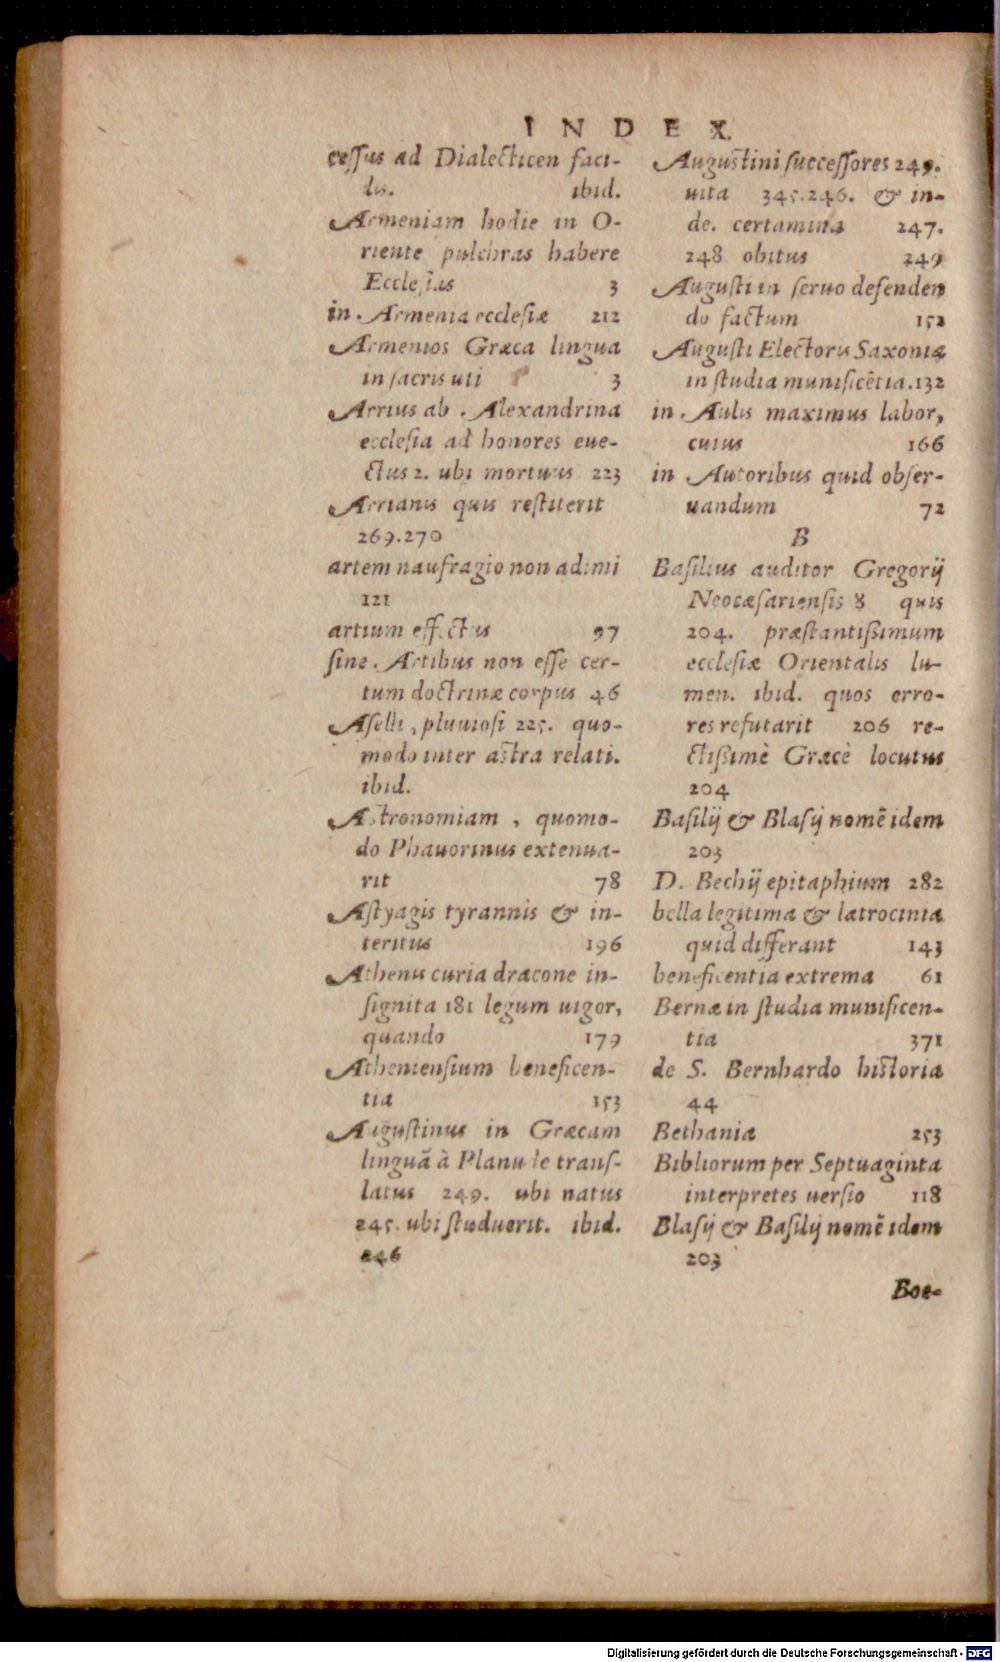 INDEX.
cessus ad Dialecticen faci-
lis. ibid.
Armeniam hodie in O-
riente pulchras habere
Ecclesias 3
in Armenia ecclesiæ 212
Armenios Græca lingua
in sacris uti 3
Arrius ab Alexandrina
ecclesia ad honores eue-
ctus 2. ubi mortuus 223
Arrianis quis restiterit
269.270
artem naufragio non adimi
121
artium effectus 97
sine Artibus non esse cer-
tum doctrinæ corpus 46
Aselli, pluuiosi 225. quo-
modo inter astra relati.
ibid.
Astronomiam, quomo-
do Phauorinus extenua-
rit 78
Astyagis tyrannis & in-
teritus 196
Athenis curia dracone in-
signita 181 legum uigor,
quando 179
Atheniensium beneficen-
tia 153
Augustinus in Græcam
linguã à Planude trans-
latus 249. ubi natus
245. ubi studuerit. ibid.
246
Augustini successores 249.
uita 345.246. & in-
de. certamina 247.
248 obitus 249
Augusti in seruo defenden
do factum 152
Augusti Electoris Saxoniæ
in studia munificẽtia.132
in Aulis maximus labor,
cuius 166
in Autoribus quid obser-
uandum 72
B
Basilius auditor Gregorij
Neocæsariensis 8 quis
204. præstantißimum
ecclesiæ Orientalis lu-
men. ibid. quos erro-
res refutarit 206 re-
ctißimè Græcè locutus
204
Basilij & Blasij nomẽ idem
203
D. Bechij epitaphium 282
bella legitima & latrocinia
quid differant 143
beneficentia extrema 61
Bernæ in studia munificen-
tia 371
de S. Bernhardo historia
44
Bethania 253
Bibliorum per Septuaginta
interpretes uersio 118
Blasij & Basilij nomẽ idem
203
Boe-
Digitalisierung gefördert durch die Deutsche Forschungsgemeinschaft - DFG